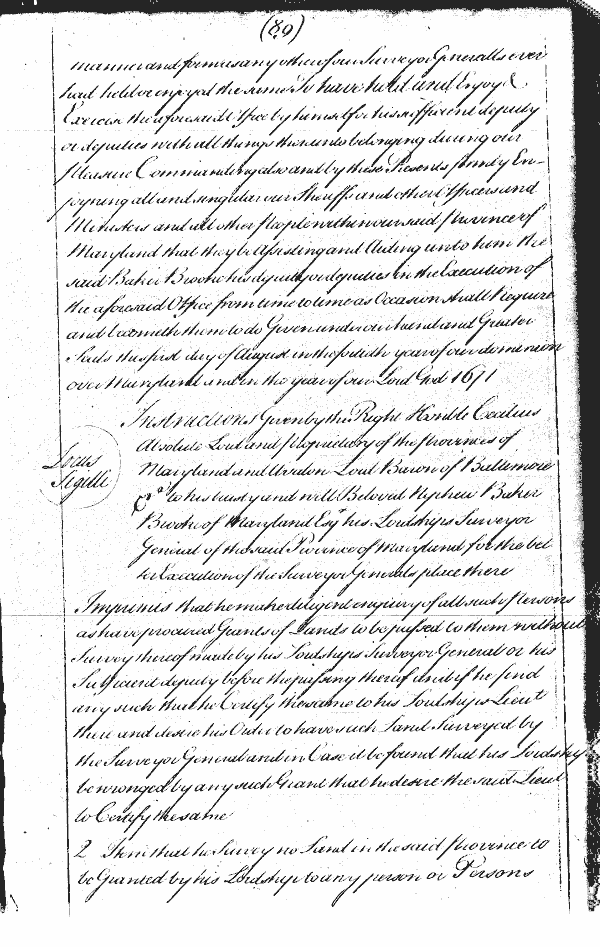 (89)
manner and forme as any other of our Surveyor Generalls ever
had held or enjoyed the same To have hold and Enjoy &
Exercise the aforesaid Office by himself or his sufficient deputy
or deputies with all things thereunto belonging during our
pleasure Commanding also and by these Presents firmly En-
joyning all and singular our Sheriffs and other Officers and
Ministers and all other People within our said Province of
Maryland that they be Assisting and Aiding unto him the
said Baker Brooke his deputy or deputies in the Execution of
the aforesaid Office from time to time as Occasion shall Require
and becometh them to do Given under our hand and Greater
Seale the first day of August in the fortieth year of our dominion
over Maryland and in the year of our Lord God 1671
Locus
Sigilli
Instructions Given by the Right Honble Cecilius
Absolute Lord and Proprietary of the Provinces of
Maryland and Avalon Lord Baron of Baltemore
&ca to his trusty and well Beloved Nephew Baker
Brooke of Maryland Esqr his Lordships Surveyor
General of the said Province of Maryland for the bet
ter Execution of the Surveyor Generals place there
Imprimis that he make diligent enquiry of all such Persons
as have procured Grants of Lands to be passed to them without
Survey thereof made by his Lordships Surveyor General or his
Sufficient deputy before the passing thereof and if he find
any such that he Certify the same to his Lordships Lieut
there and desire his Order to have such Land Surveyed by
the Surveyor General and in Case it be found that his Lordship
be wronged by any such Grant that he desire the said Lieut
to Certify the same
2 Item that he Survey no Land in the said Province to
be Granted by his Lordship to any person or Persons